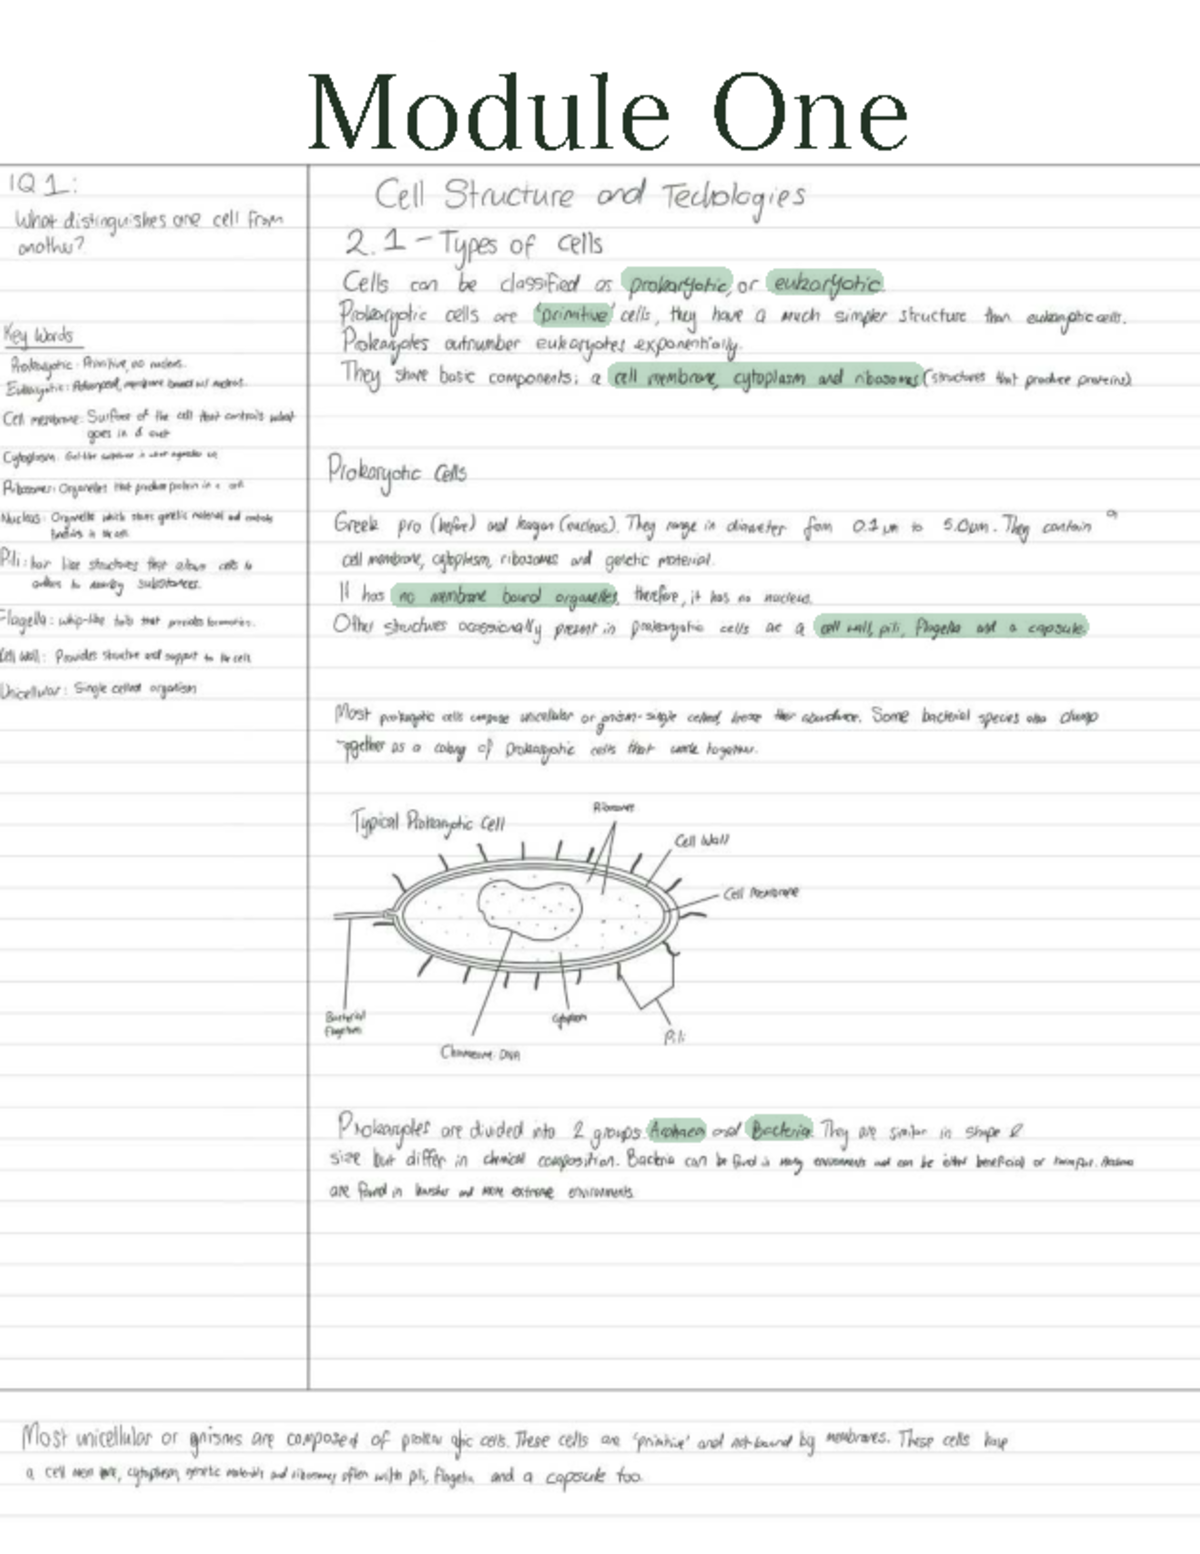 Module One
IQ 1:
What distinguishes one cell from
another?
Key Words
Prokaryotic: Primitive, no nucleus.
Eukaryotic: Advanced, membrane bound w/ nucleus.
Cell membrane: Surface of the cell that controls what
goes in & out
Cytoplasm: Gel-like substance
Ribosomes: Organelles that produce protein in a cell.
Nucleus: Organelle which stores genetic material and controls
Pili: hair like structures that allows cells to
adhere to nearby substances.
Flagella: whip-like tails that provides
Cell Wall: Provides structure and support to the cell.
Unicellular: Single celled organism
Cell Structure and Techologies
2.1 - Types of cells
Cells can be classified as prokaryotic, or eukaryotic.
Prokaryotic cells are 'primitive' cells, they have a much simpler structure than eukaryotic cells.
Prokaryotes outnumber eukaryotes exponentially.
They share basic components; a cell membrane, cytoplasm and ribosomes (structures that produce proteins)
Prokaryotic Cells
Greek pro (before) and karyon (nucleus). They range in diameter from 0.1 µm to 5.0µm. They contain a
cell membrane, cytoplasm, ribosomes and genetic material.
It has no membrane bound organelles, therefore, it has no nucleus.
Other structures occassionally present in prokaryotic cells are a cell wall, pili, flagella and a capsule.
Most prokaryotic cells compose unicellular organism- single celled, hence their abundance. Some bacterial species also clump
together as a colony of prokaryotic cells that work together.
Typical Prokaryotic Cell
Ribosomes
Cell Wall
Cell Membrane
Bacterial
flagellum
Cytoplasm
Pili
Chromosome DNA
Prokaryotes are divided into 2 groups: Archaea and Bacteria. They are similar in shape &
size but differ in chemical composition. Bacteria can be found in many environments and can be either beneficial or harmful. Archaea
are found in harsher and more extreme environments.
Most unicellular organisms are composed of prokaryotic cells. These cells are 'primitive' and not bound by membranes. These cells have
a cell membrane, cytoplasm, genetic materials and ribosomes, often with pili, flagella and a capsule too.